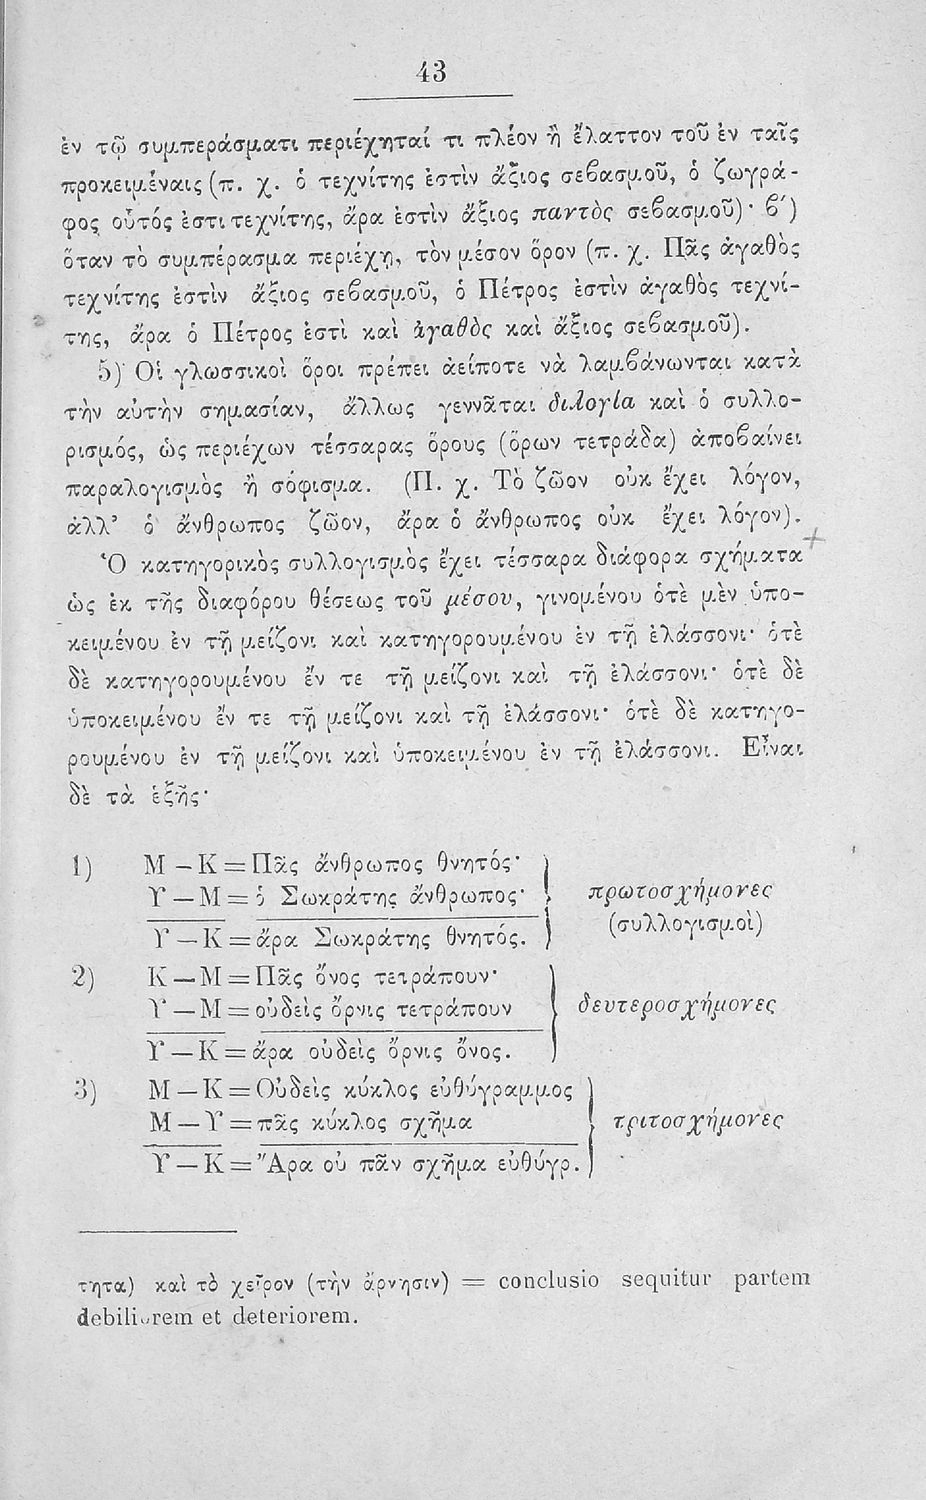 43
ἐν τῷ συμπεράσματι περιέχηταί τι πλέον ἢ ἔλαττον τοῦ ἐν ταῖς
προκειμέναις (π. χ. ὁ τεχνίτης ἐστὶν ἄξιος σεβασμοῦ, ὁ ζωγρά-
φος οὗτός ἐστι τεχνίτης, ἄρα ἐστὶν ἄξιος παντὸς σεβασμοῦ)· β')
ὅταν τὸ συμπέρασμα περιέχῃ, τὸν μέσον ὅρον (π. χ. Πᾶς ἀγαθὸς
τεχνίτης ἐστὶν ἄξιος σεβασμοῦ, ὁ Πέτρος ἐστὶν ἀγαθὸς τεχνί-
της, ἄρα ὁ Πέτρος ἐστὶ καὶ ἀγαθὸς καὶ ἄξιος σεβασμοῦ).
5) Οἱ γλωσσικοὶ ὅροι πρέπει ἀείποτε νὰ λαμβάνωνται κατὰ
τὴν αὐτὴν σημασίαν, ἄλλως γεννᾶται διλογία καὶ ὁ συλλο-
ρισμός, ὡς περιέχων τέσσαρας ὅρους (ὅρων τετράδα) ἀποβαίνει
παραλογισμὸς ἢ σόφισμα. (Π. χ. Τὸ ζῶον οὐκ ἔχει λόγον,
ἀλλ' ὁ ἄνθρωπος ζῶον, ἄρα ὁ ἄνθρωπος οὐκ ἔχει λόγον).
Ὁ κατηγορικὸς συλλογισμὸς ἔχει τέσσαρα διάφορα σχήματα
ὡς ἐκ τῆς διαφόρου θέσεως τοῦ μέσου, γινομένου ὁτὲ μὲν ὑπο-
κειμένου ἐν τῇ μείζονι καὶ κατηγορουμένου ἐν τῇ ἐλάσσονι· ὁτὲ
δὲ κατηγορουμένου ἔν τε τῇ μείζονι καὶ τῇ ἐλάσσονι· ὁτὲ δὲ
ὑποκειμένου ἔν τε τῇ μείζονι καὶ τῇ ἐλάσσονι· ὁτὲ δὲ κατηγο-
ρουμένου ἐν τῇ μείζονι καὶ ὑποκειμένου ἐν τῇ ἐλάσσονι. Εἶναι
δὲ τὰ ἑξῆς·
1) Μ — Κ = Πᾶς ἄνθρωπος θνητός·
Υ — Μ = ὁ Σωκράτης ἄνθρωπος· πρωτοσχήμονες
Υ — Κ = ἄρα Σωκράτης θνητός. (συλλογισμοὶ)
2) Κ — Μ = Πᾶς ὄνος τετράπουν·
Υ — Μ = οὐδεὶς ὄρνις τετράπουν δευτεροσχήμονες
Υ — Κ = ἄρα οὐδεὶς ὄρνις ὄνος.
3) Μ — Κ = Οὐδεὶς κύκλος εὐθύγραμμος
Μ — Υ = πᾶς κύκλος σχῆμα τριτοσχήμονες
Υ — Κ = Ἄρα οὐ πᾶν σχῆμα εὐθύγρ.
τητα) καὶ τὸ χεῖρον (τὴν ἄρνησιν) = conclusio sequitur partem
debiliorem et deteriorem.